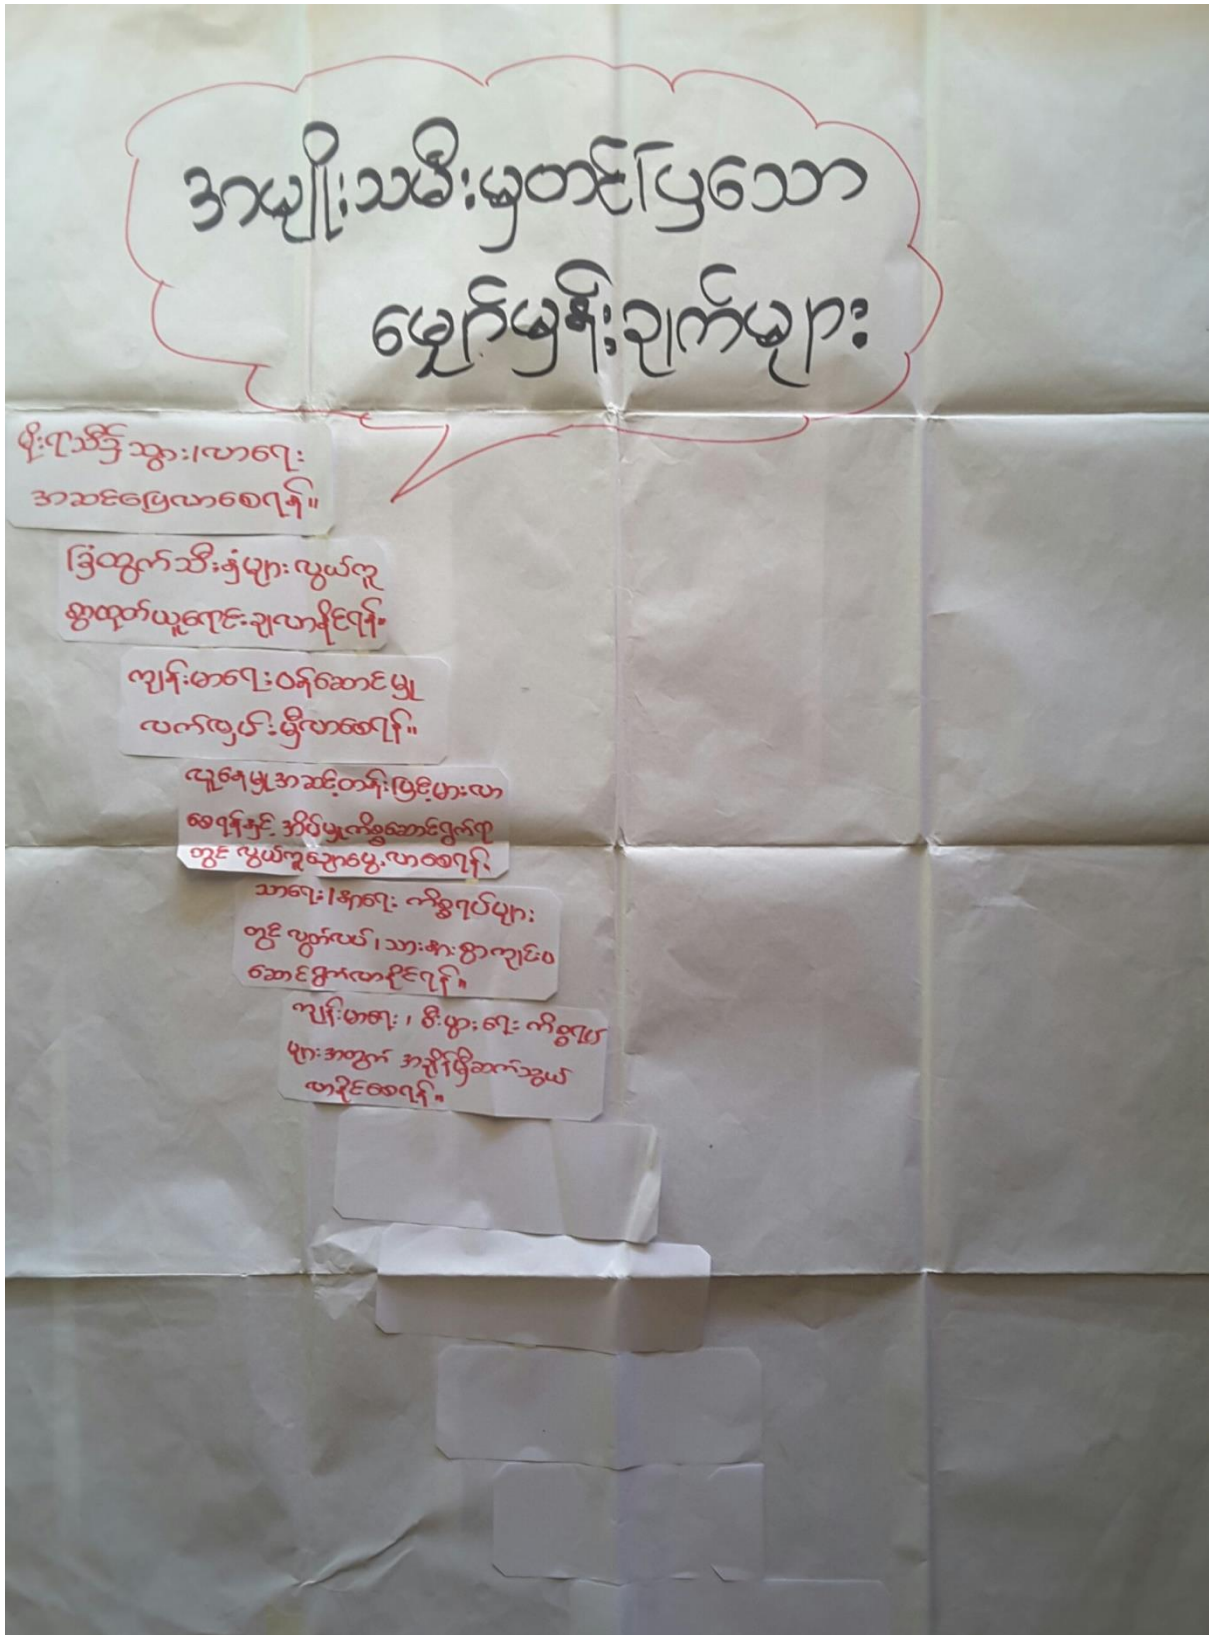 အမျိုးသမီးမှတင်ပြသော
မျှော်မှန်းချက်များ
မိုးရာသီ၌ သွား/လာရေး
အဆင်ပြေလာစေရန်။
ခြံထွက်သီးနှံများ လွယ်ကူ
စွာထုတ်ယူရောင်းချလာနိုင်ရန်။
ကျန်းမာရေးဝန်ဆောင်မှု
လက်လှမ်းမှီလာစေရန်။
လူနေမှုအဆင့်တန်းမြင့်မားလာ
စေရန်နှင့် အိမ်မှုကိစ္စဆောင်ရွက်ရာ
တွင် လွယ်ကူချောမွေ့လာစေရန်။
သာရေး/နာရေး ကိစ္စရပ်များ
တွင် လွတ်လပ်၊ သားနားစွာကျင်းပ
ဆောင်ရွက်လာနိုင်ရန်။
ကျန်းမာရေး၊ စီးပွားရေး ကိစ္စရပ်
များအတွက် အချိန်မှီဆက်သွယ်
လာနိုင်စေရန်။